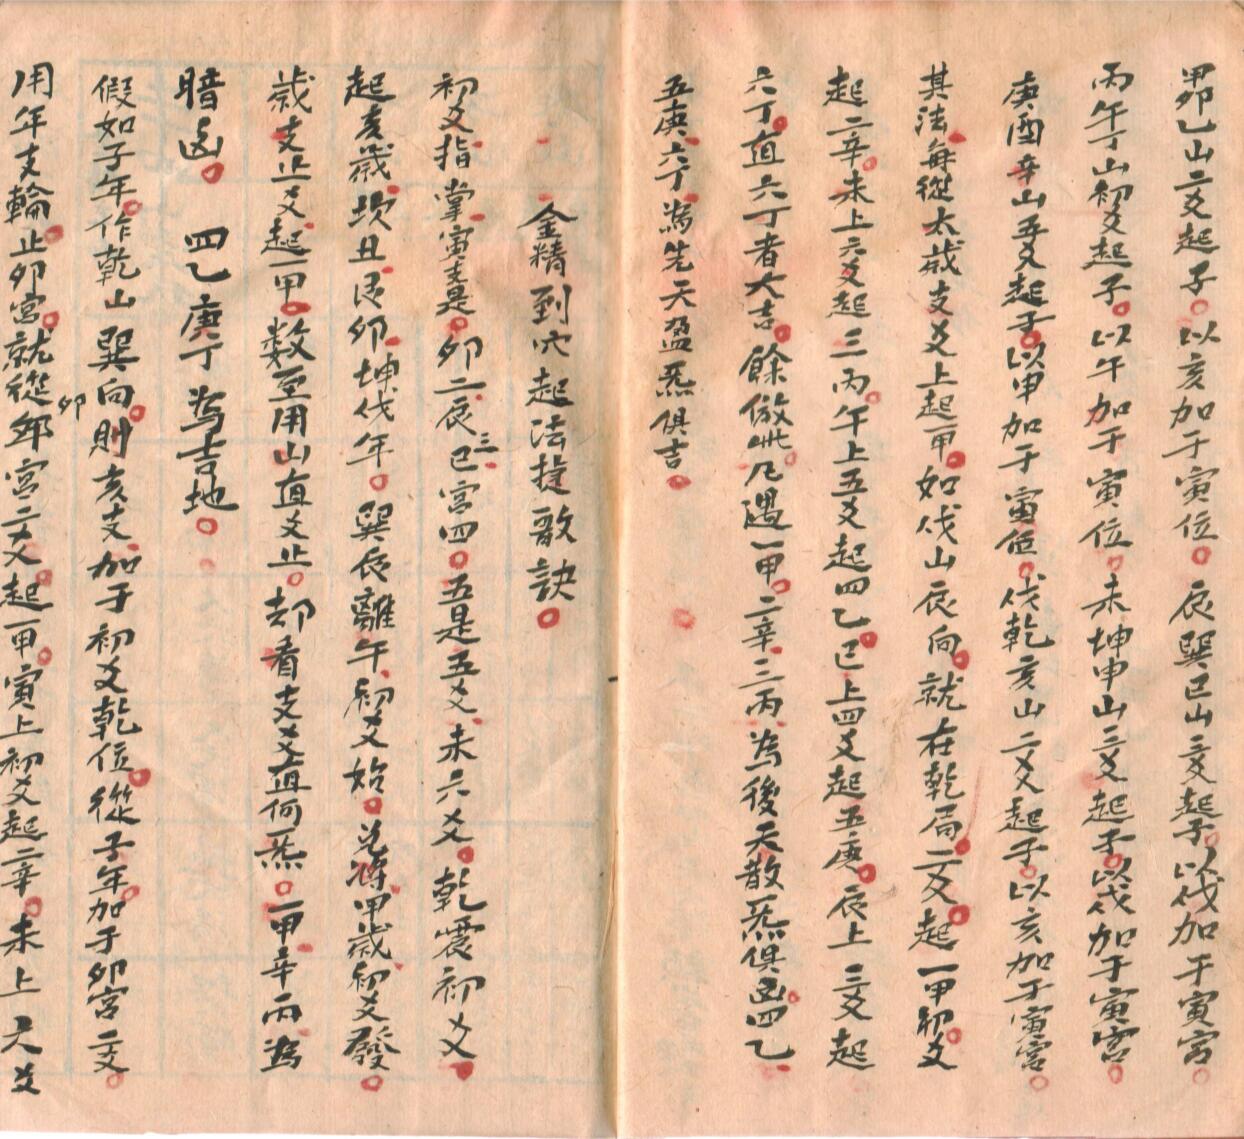 甲卯乙山二爻起子。以亥加于寅位。辰巽巳山三爻起子。以戌加于寅宮。
丙午丁山初爻起子。以午加于寅位。未坤申山三爻起子。以戌加于寅宮。
庚酉辛山五爻起子。以甲加于寅位。戌乾亥山二爻起子。以亥加于寅宮。
其法。每從太歲支爻上起一甲。如戌山辰向。就在乾局。二爻。起一甲。卯爻
起二辛。未上六爻起三丙。午上五爻起四乙。巳上四爻起五庚。辰上三爻起
六丁。直六丁者大吉。餘倣此。凡遇一甲。二辛。三丙。為後天散炁俱凶。四乙。
五庚。六丁。為先天盈炁俱吉。
金精到穴起法捷歌訣。
初爻指掌寅支是。卯二辰三巳宮四。五是五爻未六爻。乾震初爻。
起亥歲。坎丑艮卯坤戌年。巽辰離午初爻始。兌將甲歲初爻發。
歲支止爻起一甲。数至用山直爻止。却看支爻直何炁。一甲辛丙為
暗凶。四乙庚丁為吉地。
假如子年。作乾山巽向。則亥支加于初爻乾位。從子年。加于卯宮二爻。
用年支輪。止卯宮。就從卯宮二爻。起一甲。寅上初爻起二辛。未上六爻